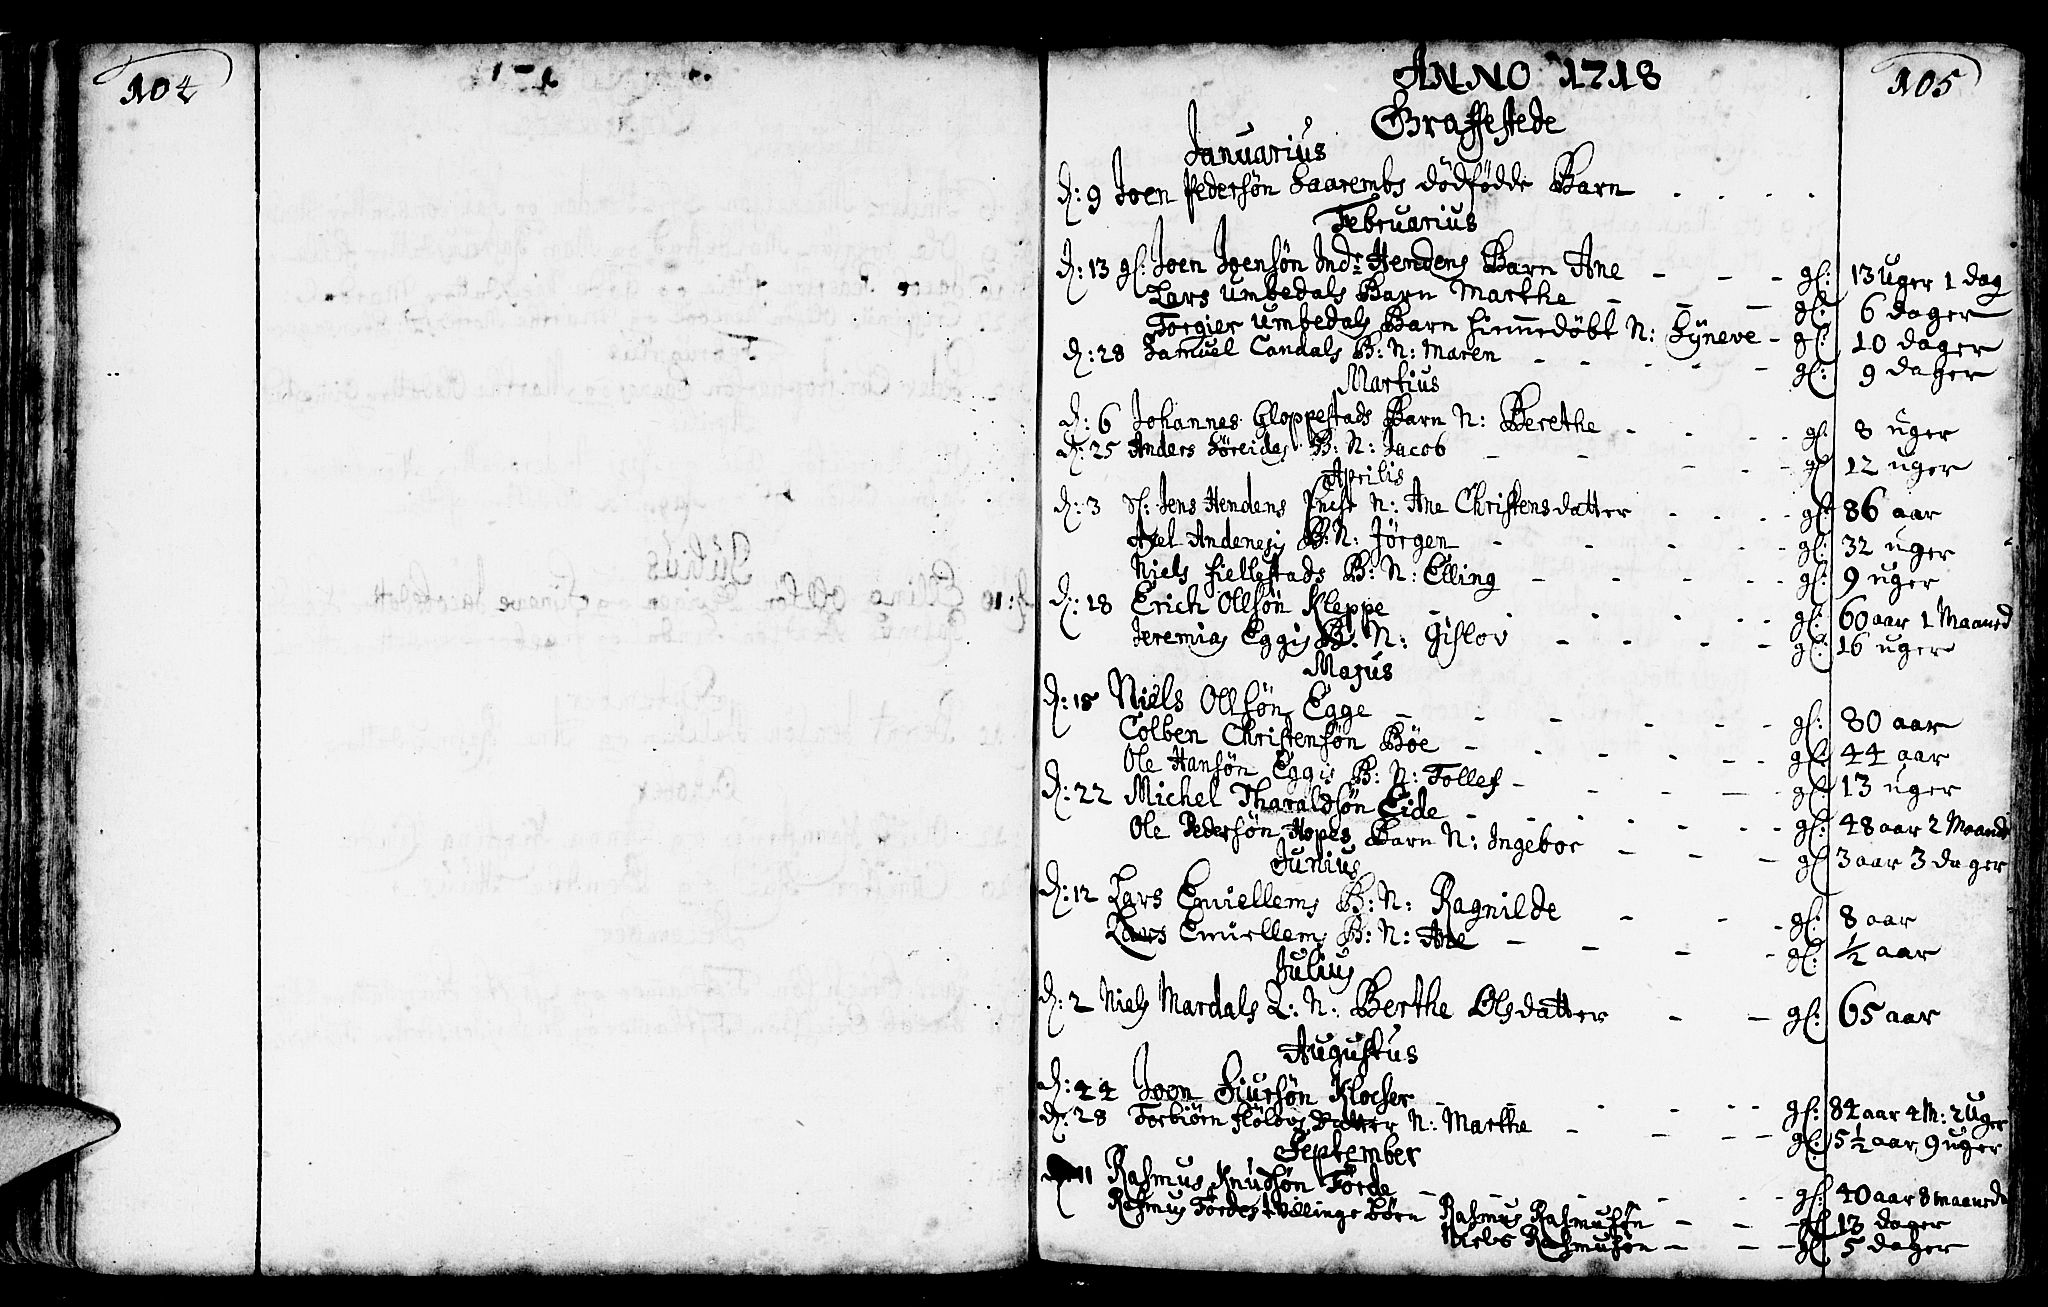 104
105
ANNO 1718
Graffestede
Januarius
d: 9 Joen Pedersøn Saarembs dödfödde Barn
Februarius
d: 13 gl: Joen Joensøn Indr Hendens Barn Ane - - - gl: 13 uger 1 dag
Lars Umbedals Barn Marthe - - - gl: 6 dager
Torgier Umbedals Barn hiemedöbt N: Syneve - gl: 10 dager
d: 28 Samuel Candals B: N: Maren - - - - gl: 9 dager
Martius
d: 6 Johannes Gloppestads Barn N: Berethe - - - gl: 8 uger
d: 25 Anders Söreides B: N: Jacob - - - gl: 12 uger
Aprilis
d: 3 Sl: Jens Hendens N: Ane Christensdatter - - - gl: 86 aar
Axel Andenesis B: N: Jörgen - - - gl: 32 uger
Niels Fiellestads B: N: Elling - - - gl: 9 uger
d: 18 Erich Ollsøn Kleppe - - - gl: 60 aar 1 Maaned
Jeremias Eggis B: N: Gislov - - - gl: 16 uger
Majus
d: 15 Niels Ollsøn Egge - - - gl: 80 aar
Colben Christensøn Böe - - - gl: 44 aar
Ole Hansøn Eggis B: N: Tollef - - - gl: 13 uger
d: 22 Michel Tharaldsøn Eide - - - gl: 48 aar 2 Maande
Ole Pedersøn Hopes Barn N: Ingebor - - - gl: 3 aar 3 dager
Junius
d: 12 Lars Emellems B: N: Ragnilde - - - gl: 8 aar
Lars Emellems B: N: Ane - - - gl: ½ aar
Julius
d: 2 Niels Mardals Q: N: Berthe Olsdatter - - gl: 65 aar
Augustus
d: Joen Siursøn Klocker - - - gl: 84 aar 4 M: 2 Uger
d: 28 Torbiörn Datter N: Marthe - - - gl: 5½ aar, 9 uger
September
11 Rasmus Knudsøn Förde - - - gl: 40 aar 8 maaneder
Rasmus Fördes tvillinge börn Rasmus Rasmusøn - - - gl: 13 dager
Niels Rasmusøn - - - gl: 5 dager